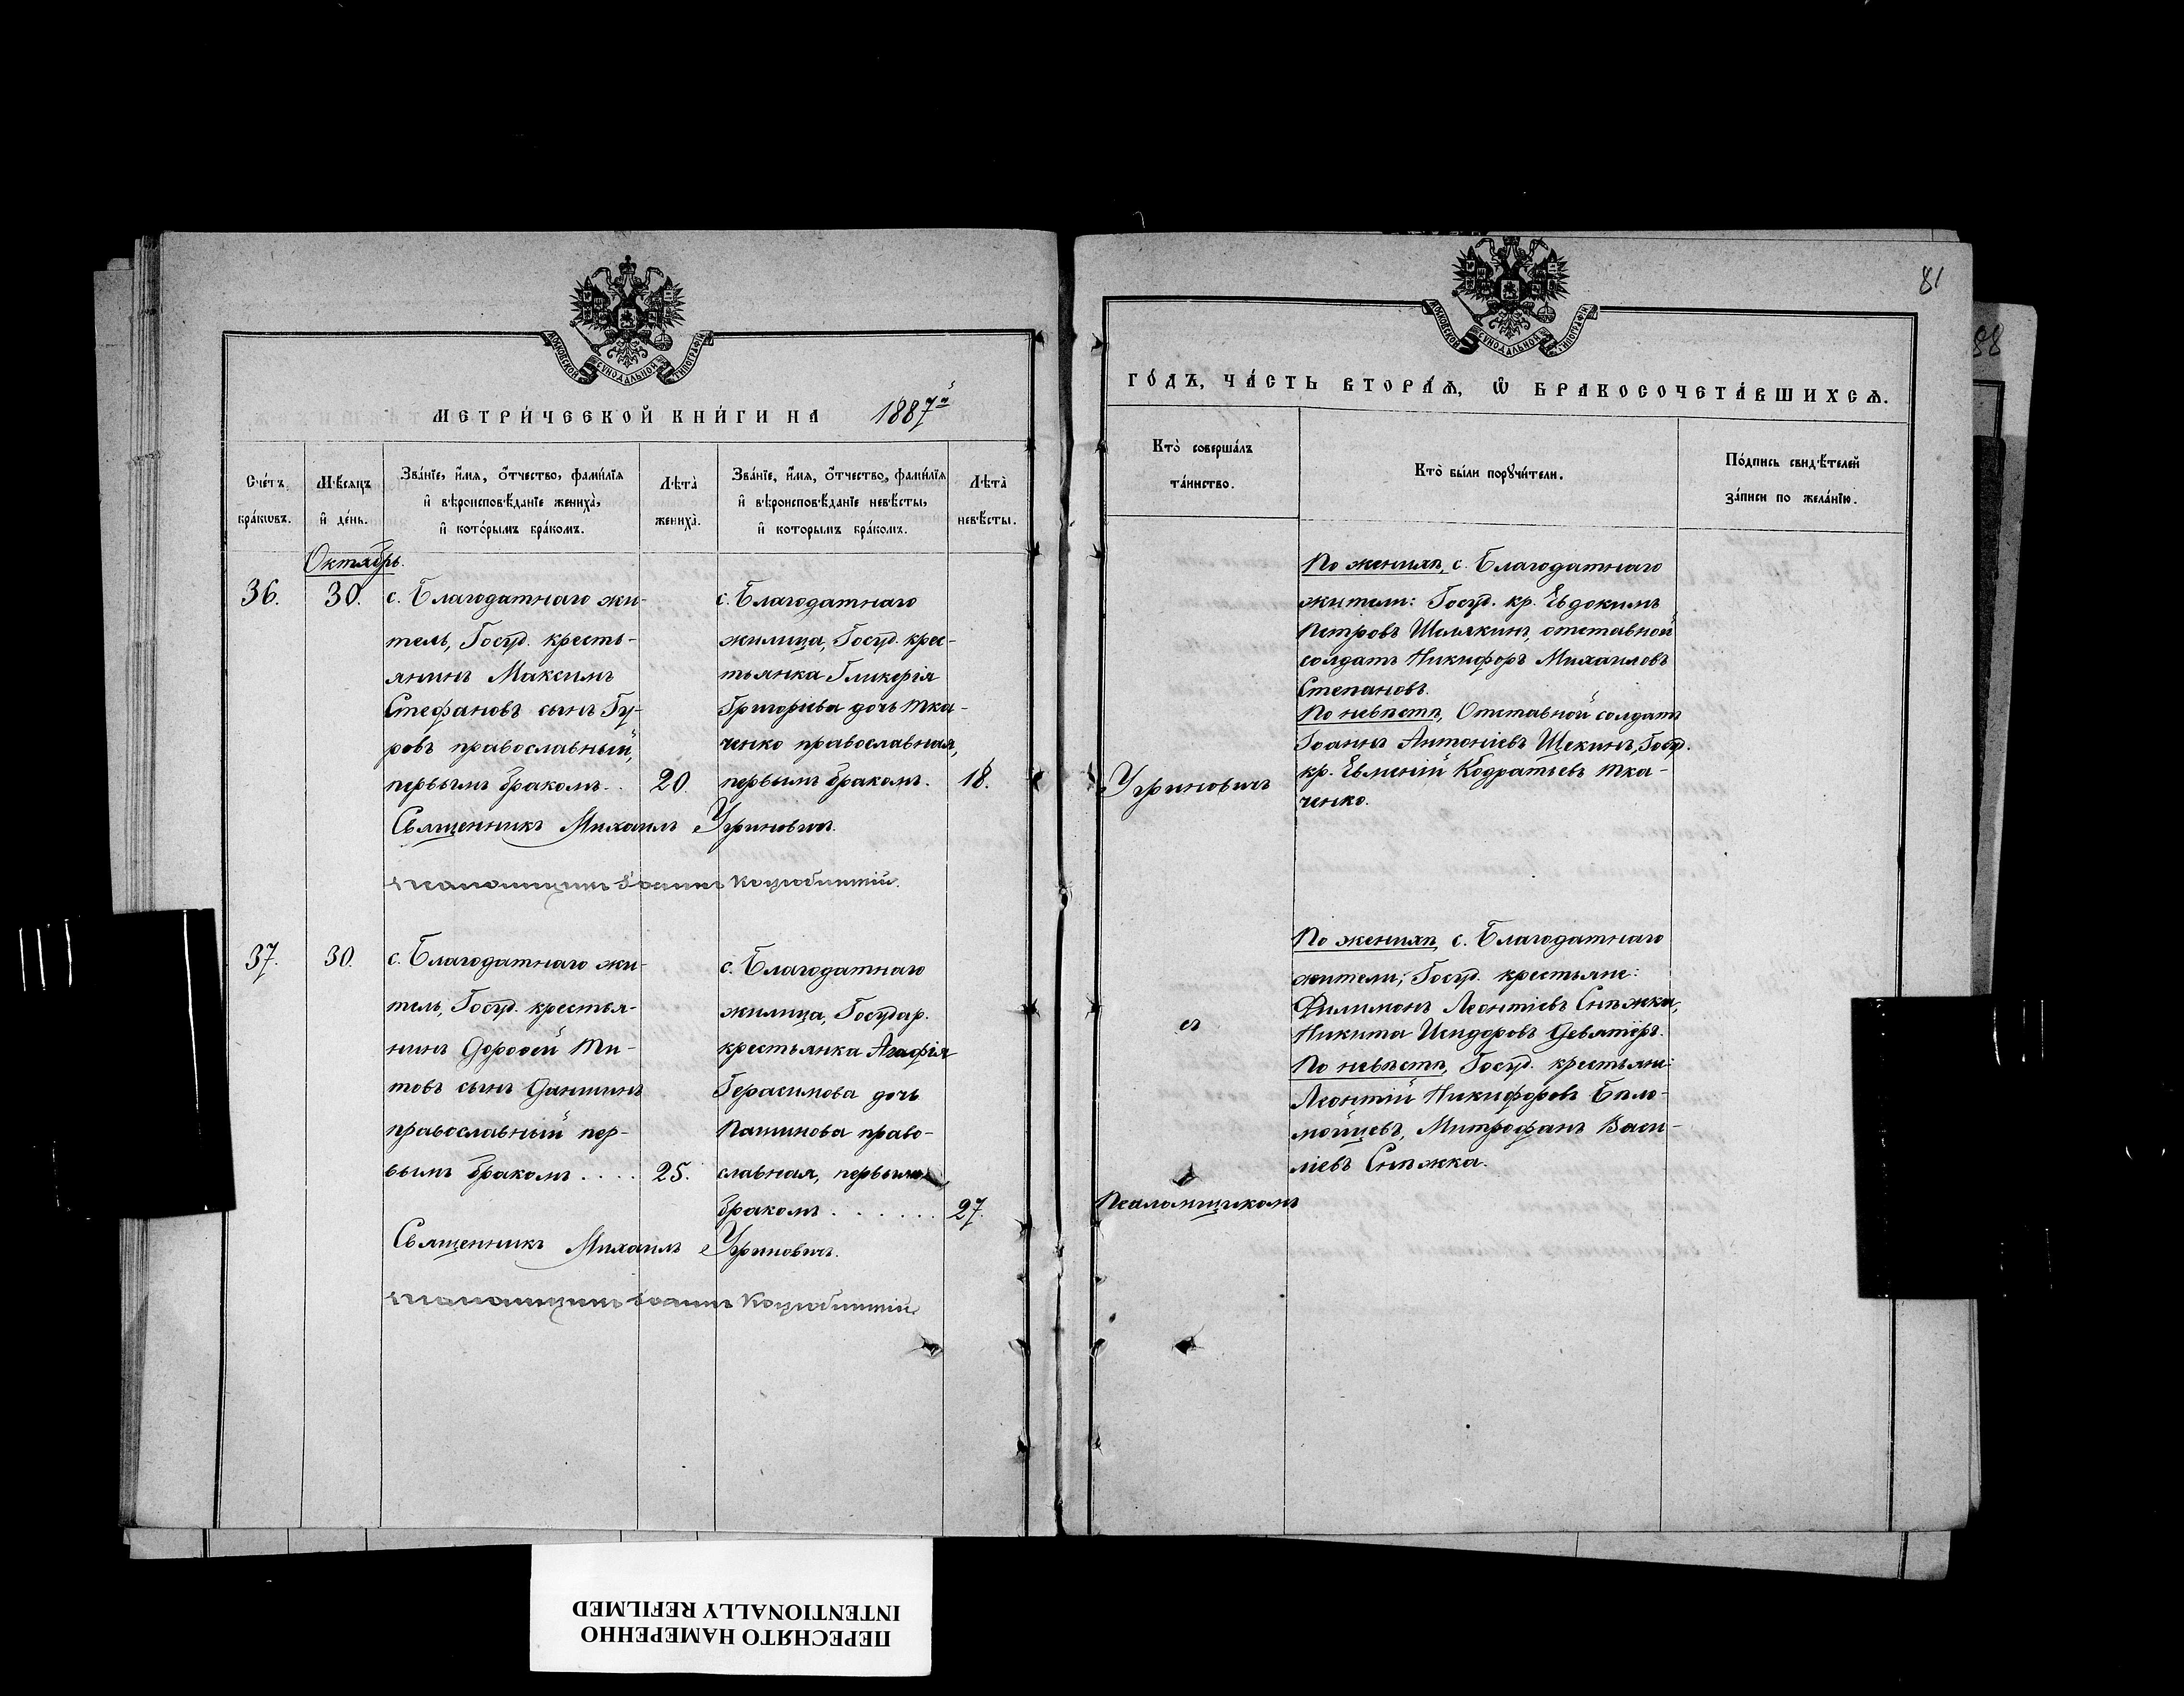 81
88
МОСКОВСКОЙ СѴНОДАЛЬНОЙ ТИПОГРАФІИ
МЕТРИ́ЧЕСКОЙ КНИ́ГИ НА 1887й
Сче́тъ бра́кѡвъ.
Мѣ́сяцъ и҆ де́нь.
Зва́нїе, и҆́мя, ѻ҆́тчество, фами́лїя
и҆ вѣроисповѣ́данїе жениха̀,
и҆ кото́рымъ бра́комъ.
Лѣта̀ жениха̀.
Зва́нїе, и҆́мя, ѻ҆́тчество, фами́лїя
и҆ вѣроисповѣ́данїе невѣ́сты,
и҆ которымъ бра́комъ.
Лѣта̀ невѣ́сты.
Октябрь.
36.
30.
с. Благодатнаго жи-
тель, Госуд. кресть-
янинъ Максимъ
Стефановъ сынъ Гу-
ровъ православный,
первымъ бракомъ..
20.
с. Благодатнаго
жилица, Госуд. крес-
тьянка Гликерія
Григоріева дочь Тка-
ченко православная,
первымъ бракомъ.
18.
Священникъ Михаилъ Угриновичъ.
Псаломщикъ Іоаннъ Коцюбинскій.
37.
30.
с. Благодатнаго жи-
тель, Госуд. крестья-
нинъ Дорофей Ти-
товъ сынъ Даншинъ
православный пер-
вымъ бракомъ....
25.
с. Благодатнаго
жилица, Государ.
крестьянка Агафія
Герасимова дочь
Пашинова право-
славная, первымъ
бракомъ.......
27.
Священникъ Михаилъ Угриновичъ.
Псаломщикъ Іоаннъ Коцюбинскій.
МОСКОВСКОЙ СѴНОДАЛЬНОЙ ТИПОГРАФІИ
ГО́ДЪ, ЧА́СТЬ ВТОРА́Ѧ, Ѡ҆ БРАКОСОЧЕТА́ВШИХСѦ.
Кто̀ соверша́лъ
та́инство.
Кто̀ бы́ли порꙋчи́тели.
По́дпись свидѣ́телей
за́писи по жела́нїю.
По женихѣ, с. Благодатнаго
жители: Госуд. кр. Евдокимъ
Петровъ Шелякинъ, отставной
солдатъ Никифоръ Михаиловъ
Степановъ.
По невѣстѣ, Отставной солдатъ
Іоаннъ Антоніевъ Щекинъ, Госуд.
кр. Евменій Кодратьевъ Тка-
ченко.
Угриновичъ
По женихѣ, с. Благодатнаго
жители; Госуд. крестьяне:
Филимонъ Леонтіевъ Снѣжка,
Никита Исидоровъ Девятерь.
По невѣстѣ, Госуд. крестьяне:
Леонтій Никифоровъ Бѣло-
мойцевъ, Митрофанъ Васи-
ліевъ Снѣжка.
съ
Псаломщикомъ
ПЕРЕСНЯТО НАМЕРЕННО
INTENTIONALLY REFILMED